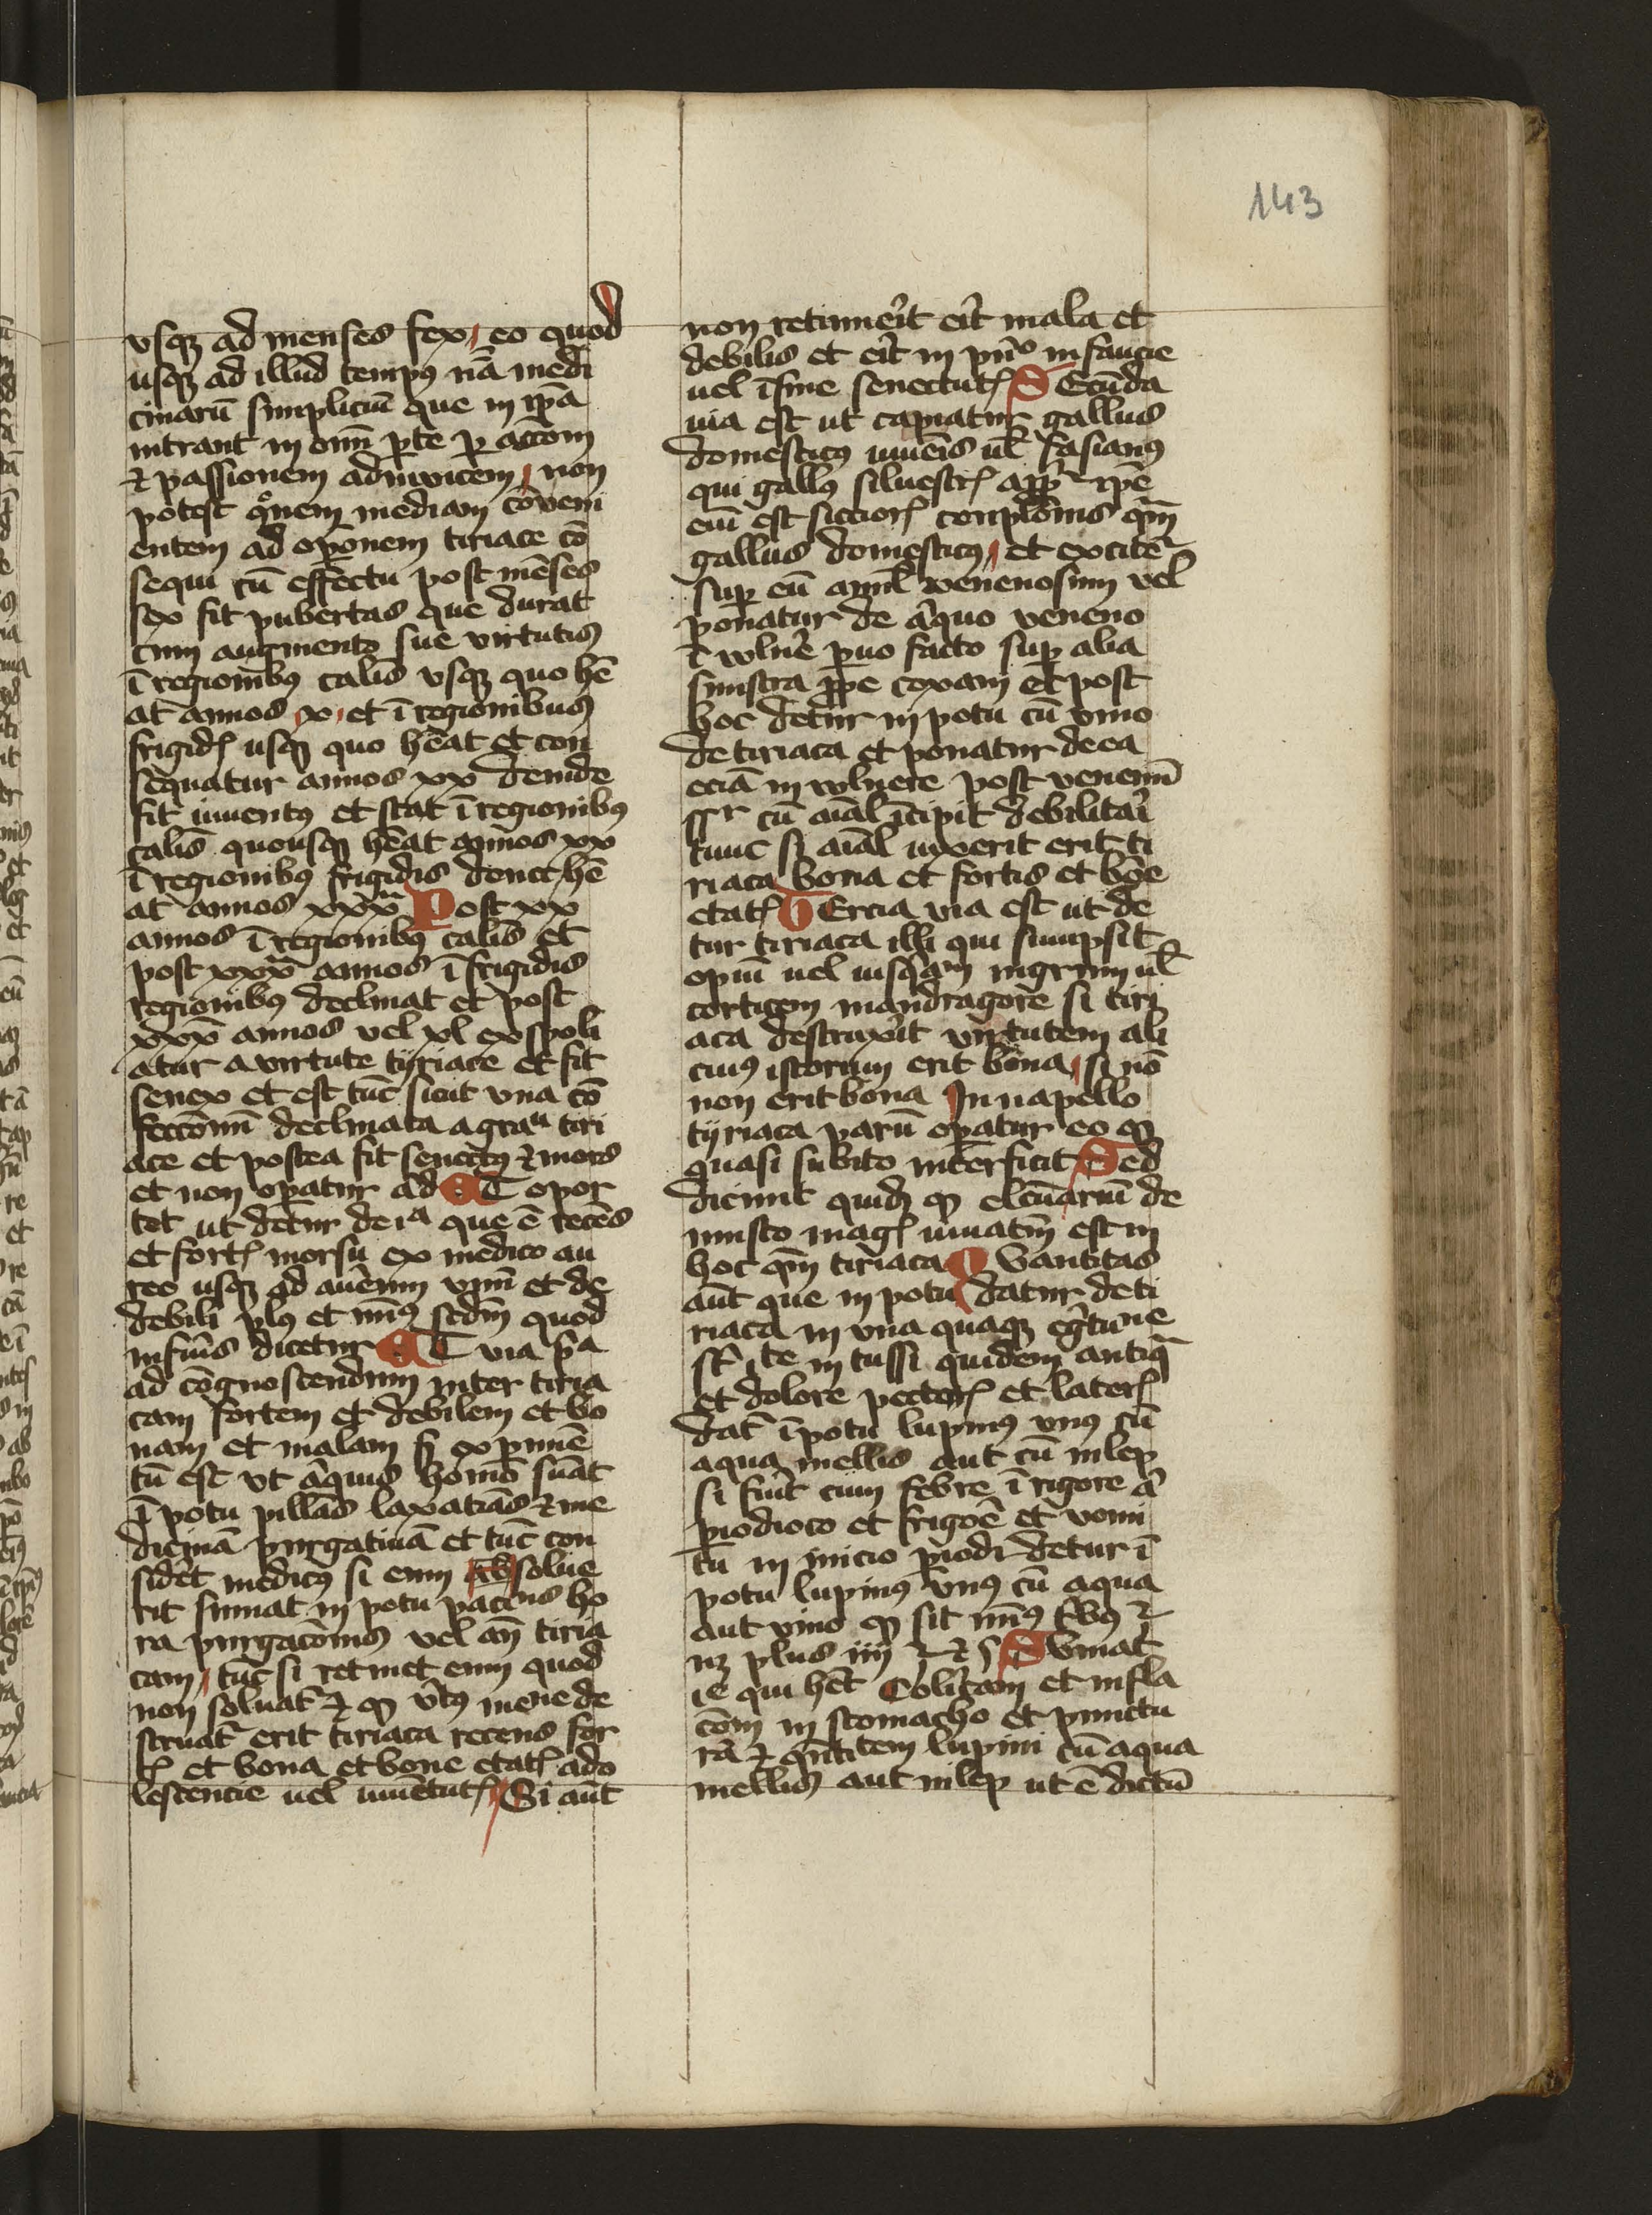 143
vsqꝫ ad menses sex eo quod
usqꝫ ad illud tempꝰ nā medi
cinarū simpliciū que in ipā
intrant in om̄ ꝑte ꝑ acc̄om
⁊ passionem adinvicem non
potest qͦnem mediam cōveni
entem ad oꝑonem tiriace cō
sequi cū effectu post mēses
sex fit pubertas que durat
cum augmento sue virtutis
ī regionibꝰ calīs vsqꝫ quo hē
at annos x et ī regionibus
frigidꝭ usqꝫ quo hēat et con
sequatur annos xx deinde
fit iuventꝰ et stat ī regionibꝰ
calīs quousqꝫ hēat annos xx
ī regionibꝰ frigidis donec hē
at annos xxxᵐ Post xx
annos ī regionibꝰ calīs et
post xxx annos ī frigidis
regionibꝰ declinat et post
xxx annos vel xl exspoli
atur a virtute tyriace et fit
senex et est tūc sicut vna cō
feccōnū declinata a gradu tiri
ace et postea fit senectꝰ ⁊ mors
et non oꝑatur ad ET opor
tet ut detur de ea que ē recēs
et fortꝭ morsu ex medico au
reo usqꝫ ad avēnm vnū et de
debili plꝰ et mīꝰ scdm quod
inferius dicetur ET via pᵃ
ad cōgnoscendum inter tiria
cam fortem et debilem et bo
nam et malam ꝑ exꝑimē
tū est vt aliquis homo sumat
ī potu pillas laxativas ⁊ me
dicinā purgativā et tūc con
sidet medicꝰ si enim absolve
rit sumat in potu paciens ho
ra purgacōnis vel an̄ tiria
cam tūc si retinet enim quod
non solvat ⁊ ꝙ v̄tꝰ mene de
struat erit tiriaca recens for
tꝭ et bona et bone etatꝭ ado
lescencie uel iuuētutꝭ Si aūt
non retinuerit erit mala et
debilis et erit in pnͦ infancie
uel ī fine senectutꝭ SEcūda
via est ut capiatur gallus
domesticꝰ iuvenis uł fasianꝰ
qui gallꝰ silvestrꝭ app̄ꝛ ipē
enī est siccior conplōnis qm̄
gallus domesticꝰ et excitēꝛ
suꝑ eū animal venenosum vel
ponatur de aliquo veneno
ī vulnere ꝑvo facto suꝑ alia
sinistra ꝓpe coxam et post
hoc detur in potu cū vino
de tiriaca et ponatur de ea
eciā in vulnere post venenū
cū aial īcipit debilitari
tunc si aial vixerit erit ti
riaca bona et fortis et bone
etatꝭ TErcia via est ut de
tur tiriaca illi qui sumpsit
opiū uel iusqͣam nigrum uł
corticem mandragore si tiri
aca destruxit virtutem ali
cuiꝰ istorum erit bona si nō
non erit bona In napello
tyriaca parū oꝑatur eo ꝙ
quasi subito interficit Sed
dicunt quidꝫ ꝙ elctuariū de
musco magꝭ iuvatm̄ est in
hoc qm̄ tiriaca Quantitas
aūt que in potu datur de ti
riaca in vna quaqꝫ egritune
ste in tussi quidem antiqͣ
et dolore pectorꝭ et laterꝭ
dat ī potu lupinꝰ vnꝰ cū
aqua mellis aut cū iulep
si fuerit cum febre ī rigore a
ꝑiodico et frigore et vomi
tu in inicio ꝑiodi detur ī
potu lupinꝰ vnꝰ cū aqua
aut vino ꝙ sit
nꝫ plus iiii SUmat
ie qui hēt Colicam et infla
com in stomacho et punctu
rā ⁊ qntitem lupini cū aqua
mellis aut iulep ut ē dictū